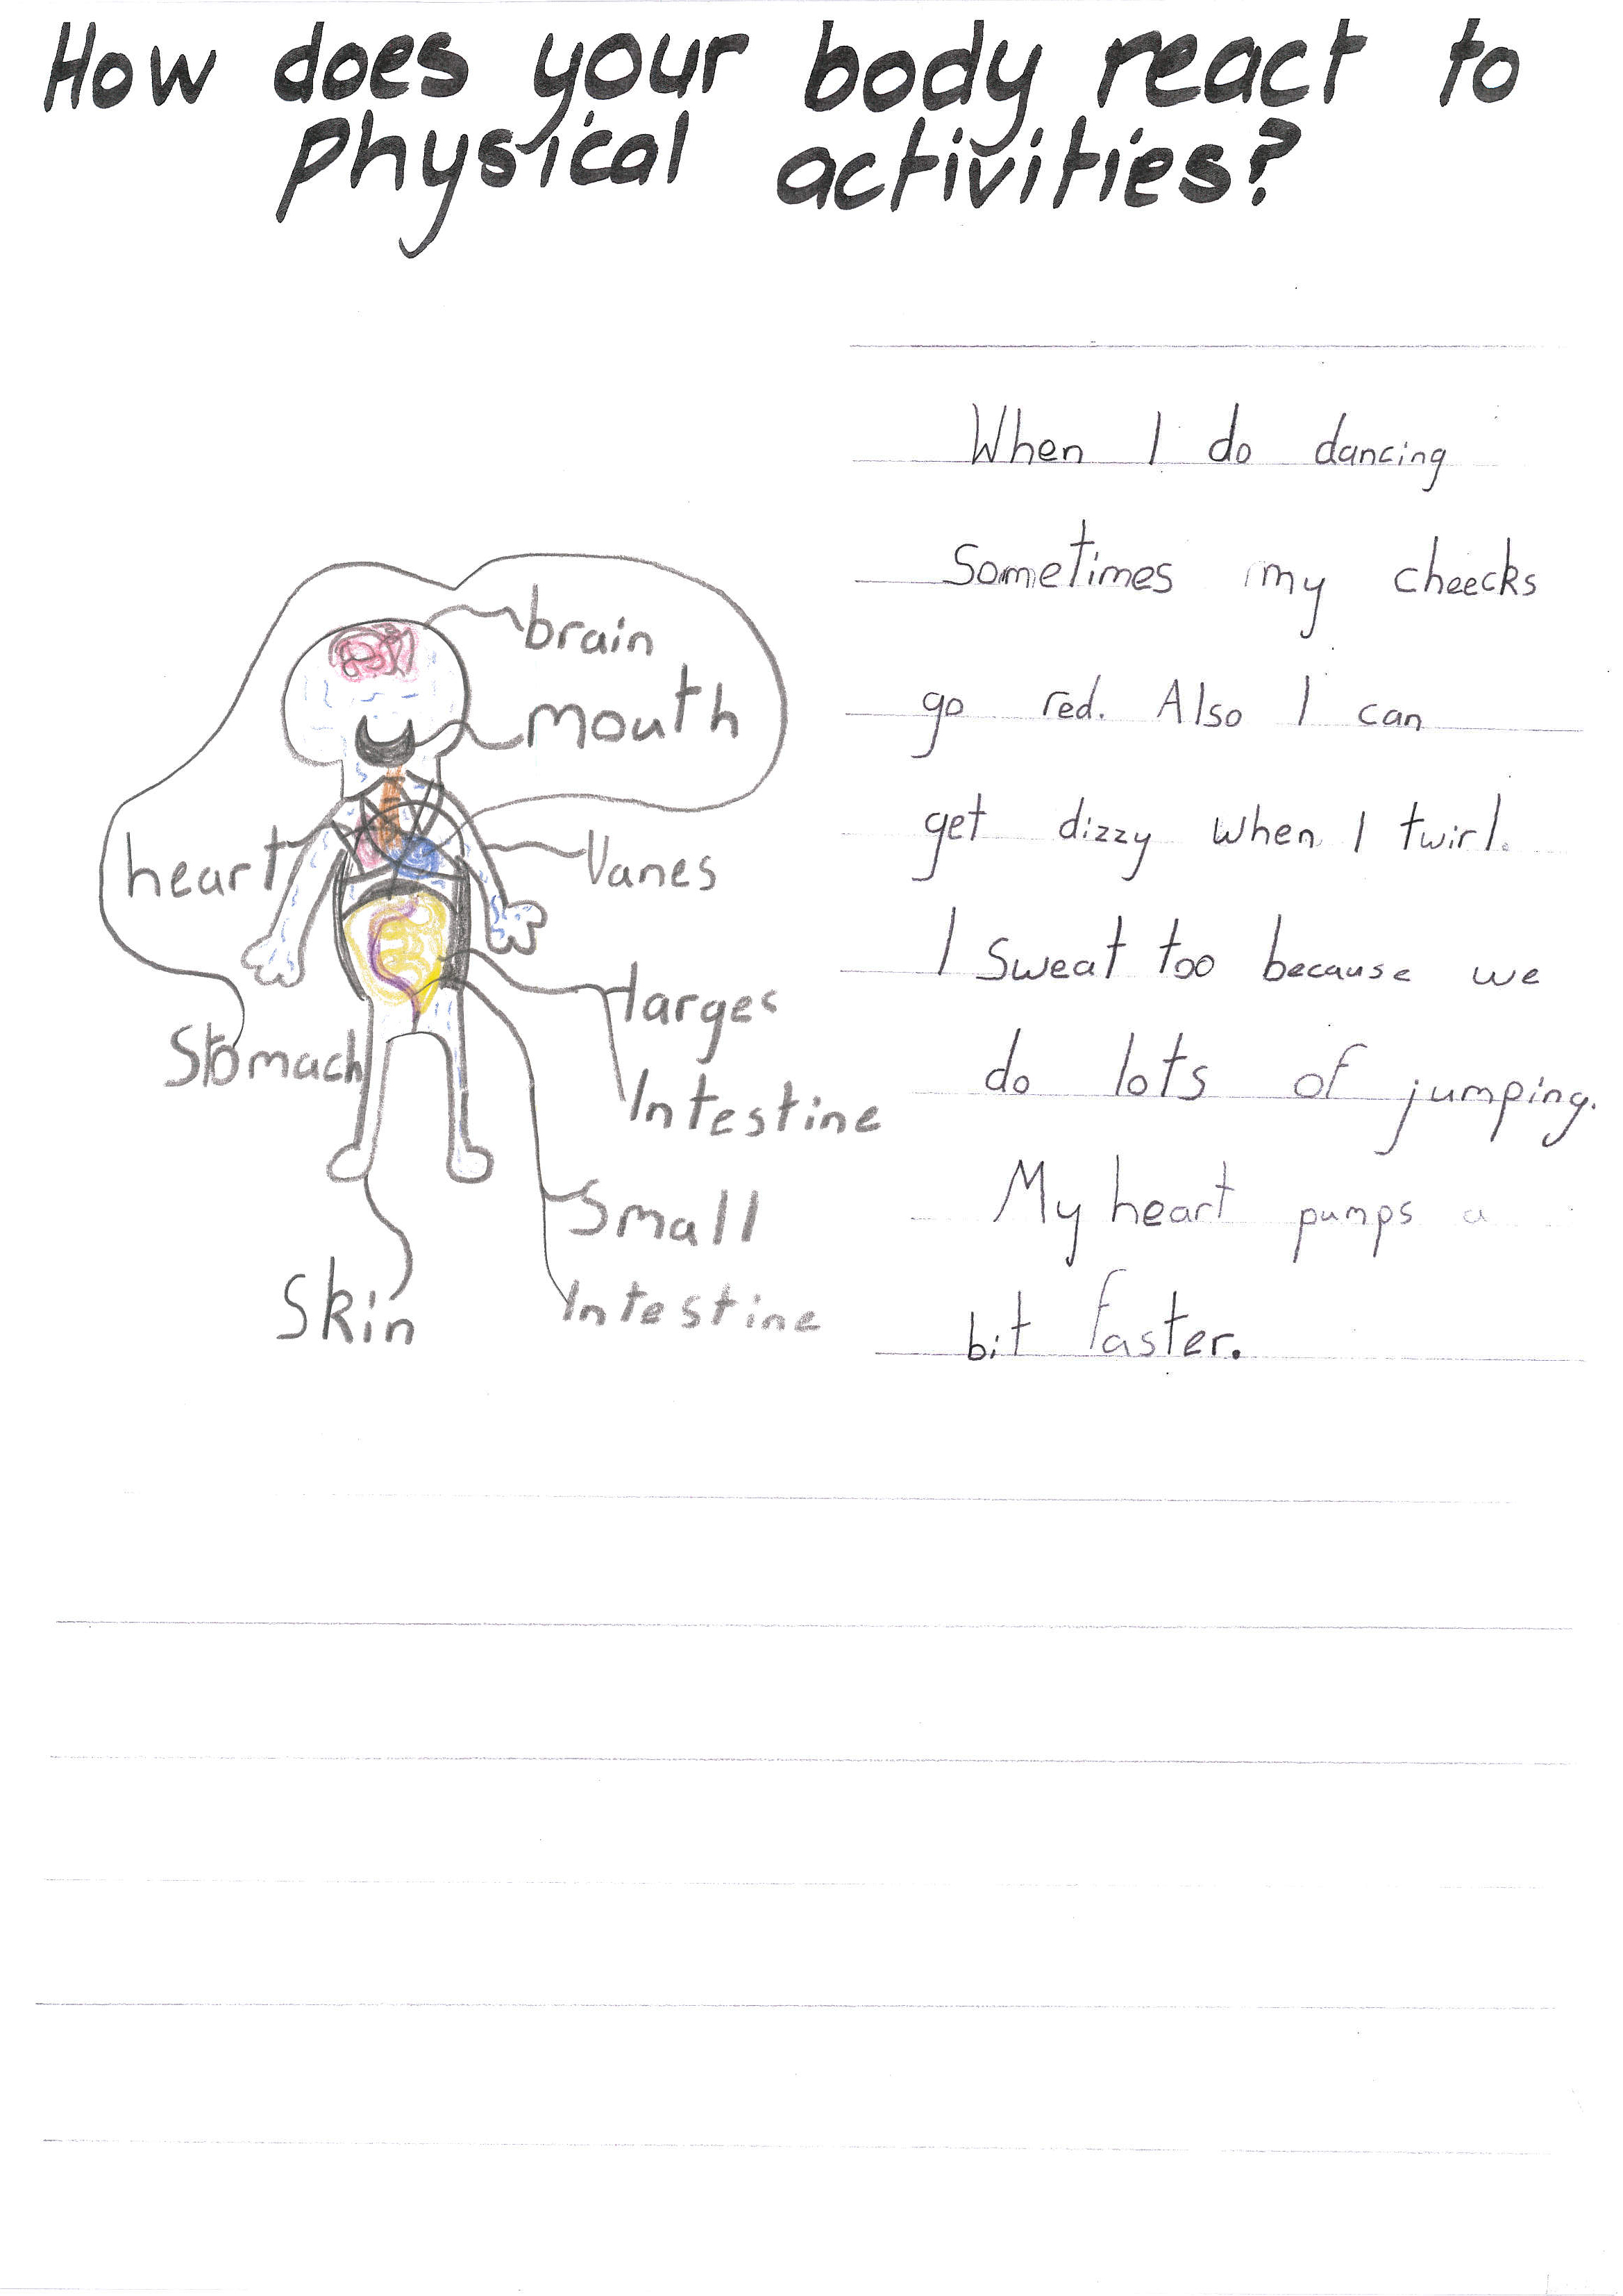 How does your body react to
Physical activities?
When I do dancing
Sometimes my cheecks
go red. Also I can
get dizzy when I twirl.
I Sweat too because we
do lots of jumping.
My heart pumps a
bit faster.
brain
mouth
heart
Vanes
larges
Intestine
Stomach
Small
Intestine
Skin